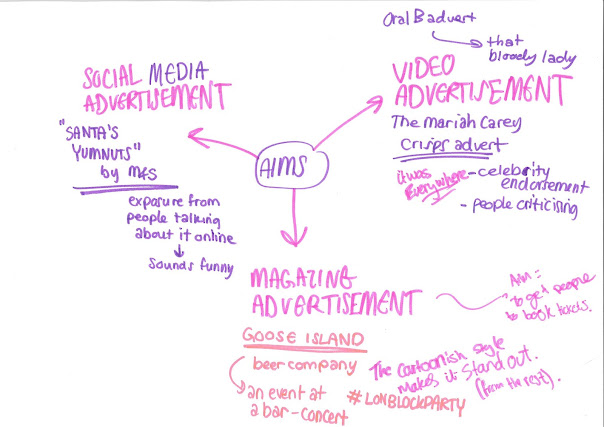 Oral B advert
that
bloody lady
SOCIAL MEDIA
ADVERTISEMENT
"SANTA'S
YUMNUTS"
by M&S
exposure from
people talking
about it online
sounds funny
AIMS
VIDEO
ADVERTISEMENT
The Mariah Carey
Crisps advert
it was
Everywhere
- celebrity
endorsement
- people criticising
MAGAZINE
ADVERTISEMENT
Aim =
to get people
to book tickets.
GOOSE ISLAND
beer company
an event at
a bar - concert
The cartoonish style
makes it stand out.
(from the rest).
#LONBLOCKPARTY